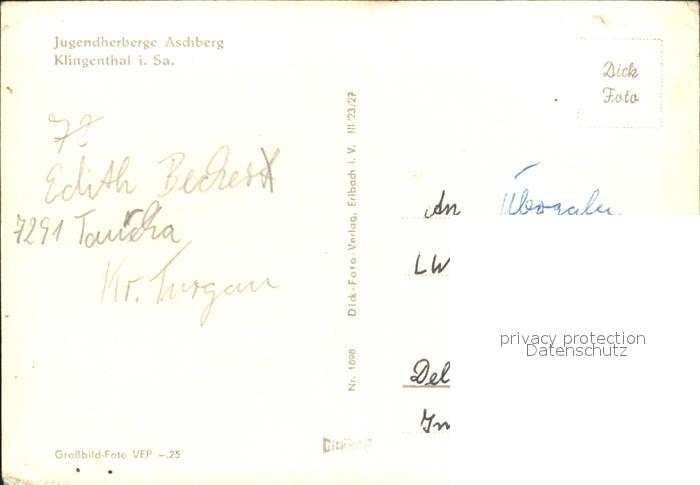 Jugendherberge Aschberg
Klingenthal i. Sa.
Dick
Foto
Edith
7291 Taucha
Kr. Turgau
Dick-Foto-Verlag, Erlbach i. V. III/23/27
Nr. 1898
An
LW
Del
In
privacy protection
Datenschutz
Großbild-Foto VEP -.25